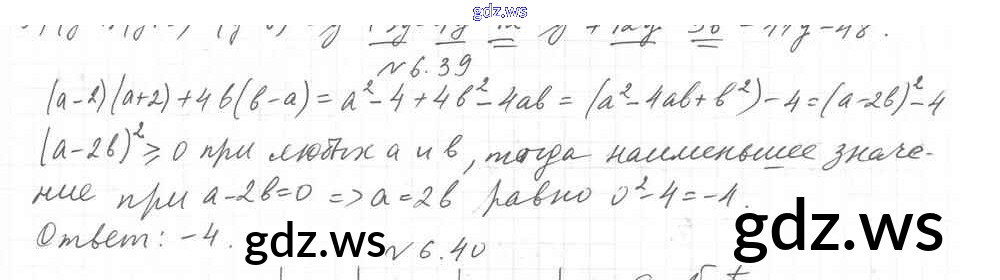 gdz.ws
№ 6.39
(a-2)(a+2)+4b(b-a) = a²-4+4b²-4ab = (a²-4ab+b²)-4 = (a-2b)²-4
(a-2b)² ≥ 0 при любых a и b, тогда наименьшее значе-
ние при a-2b=0 => a=2b равно 0²-4=-4.
Ответ: -4.
gdz.ws
gdz.ws
№ 6.40